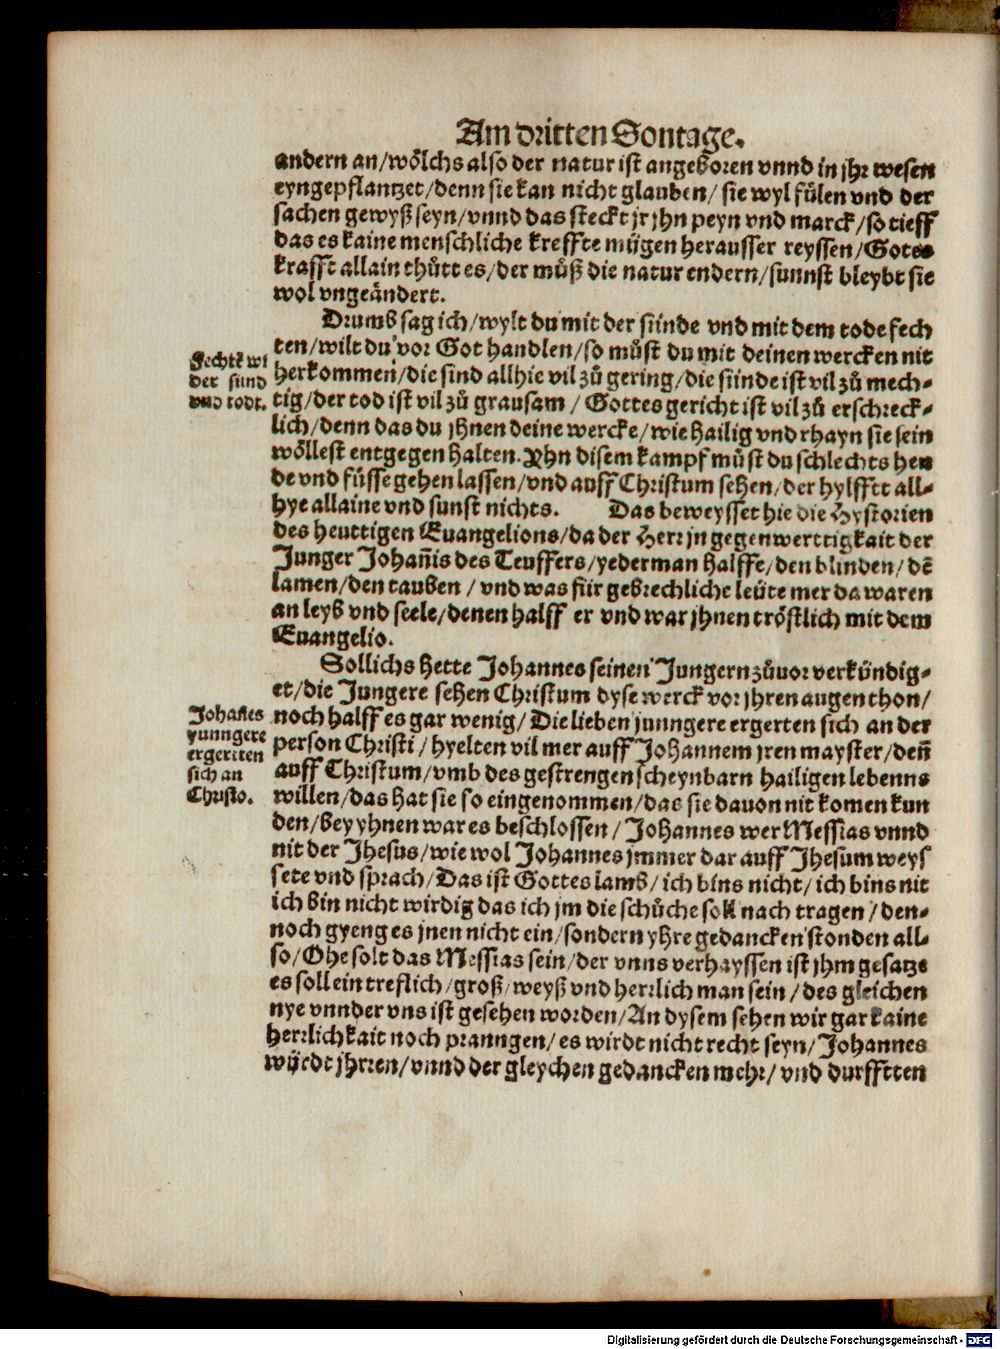 Am dritten Sontage.
andern an/wölchs also der natur ist angeboren vnnd in jhr wesen
eyngepflantzet/denn sie kan nicht glauben/ sie wyl fülen vnd der
sachen gewyß seyn/vnnd das steckt jr jhn peyn vnd marck/so tieff
das es kaine menschliche kreffte mügen herausser reyssen/Gotes
krafft allain thütt es/der müß die natur endern/sunnst bleybt sie
wol vngeändert.
Drumb sag ich/wylt du mit der sünde vnd mit dem tode fech
ten/wilt du vor Got handlen/so můst du mit deinen wercken nit
herkommen/die sind allhie vil zů gering/die sünde ist vil zů mech-
tig/der tod ist vil zů grausam / Gottes gericht ist vil zů erschreck-
lich/denn das du jhnen deine wercke/wie hailig vnd rhayn sie sein
wöllest entgegen halten. Yhn disem kampf můst du schlechts hen
de vnd füsse gehen lassen/vnd auff Christum sehen/der hylfftt all-
hye allaine vnd sunst nichts. Das beweysset hie die Hystorien
des heuttigen Euangelions/da der Herr jn gegenwerttigkait der
Junger Johañis des Teuffers/yederman halffe/den blinden/ dē
lamen/den tauben / vnd was für gebrechliche leüte mer da waren
an leyb vnd seele/denen halff er vnd war jhnen tröstlich mit dem
Euangelio.
Fechtē wi
der sünd
vnd todt.
Sollichs hette Johannes seinen Jungern zůuor verkündig-
et/die Jungere sehen Christum dyse werck vor jhren augen thon/
noch halff es gar wenig/ Die lieben junngere ergerten sich an der
person Christi / hyelten vil mer auff Johannem jren mayster/deñ
auff Christum/vmb des gestrengen scheynbarn hailigen lebenns
willen/das hat sie so eingenommen/das sie dauon nit komen kun
den/bey yhnen war es beschlossen / Johannes wer Messias vnnd
nit der Jhesus/wie wol Johannes jmmer dar auff Jhesum weys
sete vnd sprach/Das ist Gottes lamb/ich bins nicht/ich bins nit
ich bin nicht wirdig das ich jm die schůche soll nach tragen / den-
noch gyeng es jnen nicht ein/sondern yhre gedancken stonden all-
so/Ohe solt das Messias sein/der vnns verhayssen ist jhm gesatze
es soll ein treflich/groß/weyß vnd herrlich man sein / des gleichen
nye vnnder vns ist gesehen worden/An dysem sehen wir gar kaine
herrlichkait noch pranngen/es wirdt nicht recht seyn/Johannes
würdt jhrren/vnnd der gleychen gedancken mehr/vnd durfftten
Johañes
yunngere
ergertten
sich an
Christo.
Digitalisierung gefördert durch die Deutsche Forschungsgemeinschaft - DFG